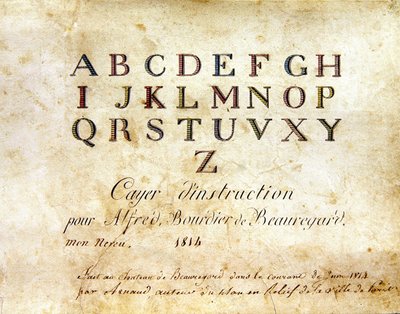 A B C D E F G H
I J K L M N O P
Q R S T U V X Y
Z
Cayer d'instruction
pour Alfred, Bourdier de Beauregard.
mon Neveu. 1814
Fait au chateau de Beauregard dans le courant de Juin 1814
par Arnaud, auteur du plan en Relief de la ville de